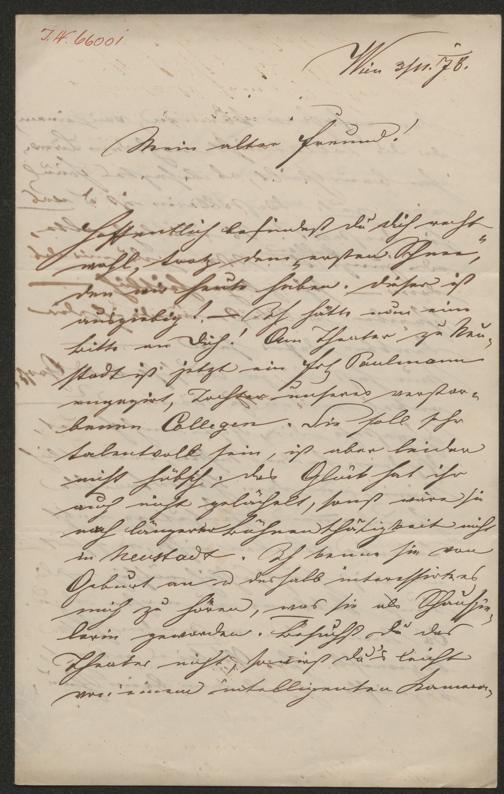 I.N. 66001
Wien 3/11. 78.
Mein alter Freund!
Hoffentlich befindest du dich recht
wohl, trotz dem „ersten Schnee,"
den wir heute haben. Dieser ist
ausgiebig! — Ich hätte nun eine
Bitte an Dich! Am Theater zu Neu-
stadt ist jetzt ein Frl Paulmann
engagirt, Tochter unseres verstor-
benen Collegen. Sie soll sehr
talentvoll sein, ist aber leider
nicht hübsch. Das Glück hat ihr
auch nicht gelächelt, sonst wäre sie
nach längerer Bühnenthätigkeit nicht
in Neustadt. Ich kenne sie von
Geburt an u deshalb interessirt es
mich zu hören, was sie als Schauspie-
lerin geworden. Besuchst du das
Theater nicht, so wirst du's leicht
von einem intelligenten Kamera-